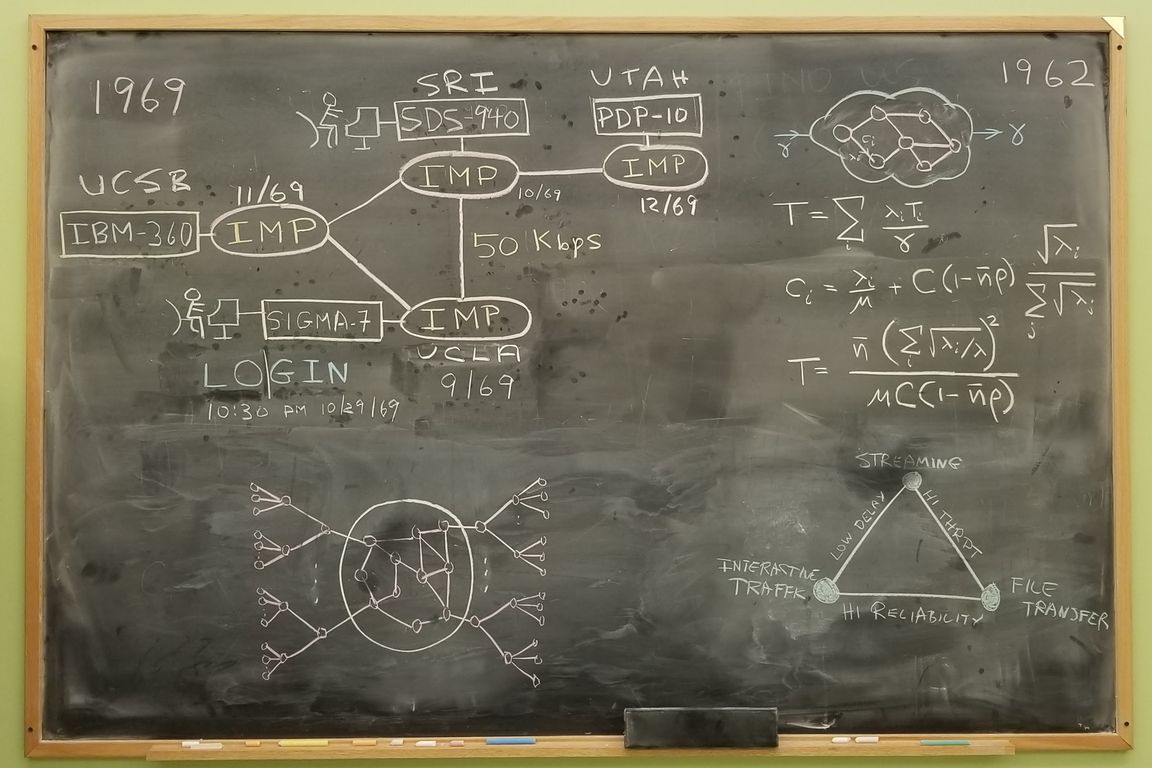 1969
SRI
SDS-940
IMP
10/69
UTAH
PDP-10
IMP
12/69
UCSB
IBM-360
11/69
IMP
50 Kbps
SIGMA-7
IMP
UCLA
9/69
LO|GIN
10:30 PM 10/29/69
1962
γ
γ
T = Σ_i λ_i T_i / γ
C_i = λ_i / μ + C(1-n̄ρ) √λ_i / Σ_j √λ_j
T = n̄ (Σ_i √λ_i/λ)² / μC(1-n̄ρ)
STREAMING
LOW DELAY
HI THRPT
INTERACTIVE
TRAFFIC
FILE
TRANSFER
HI RELIABILITY